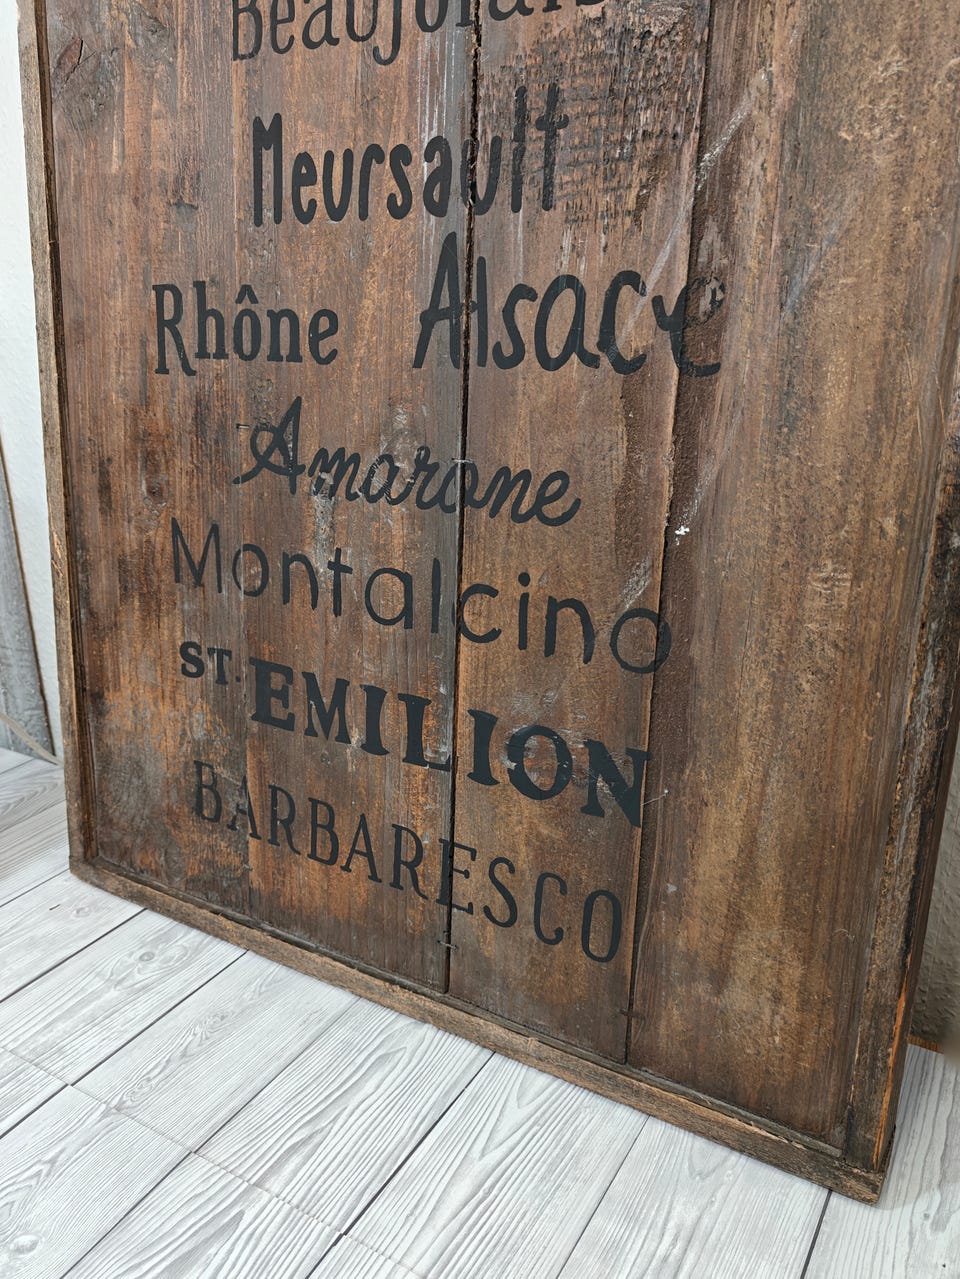 Beaujolais
Meursault
Rhône Alsace
Amarone
Montalcino
ST. EMILION
BARBARESCO